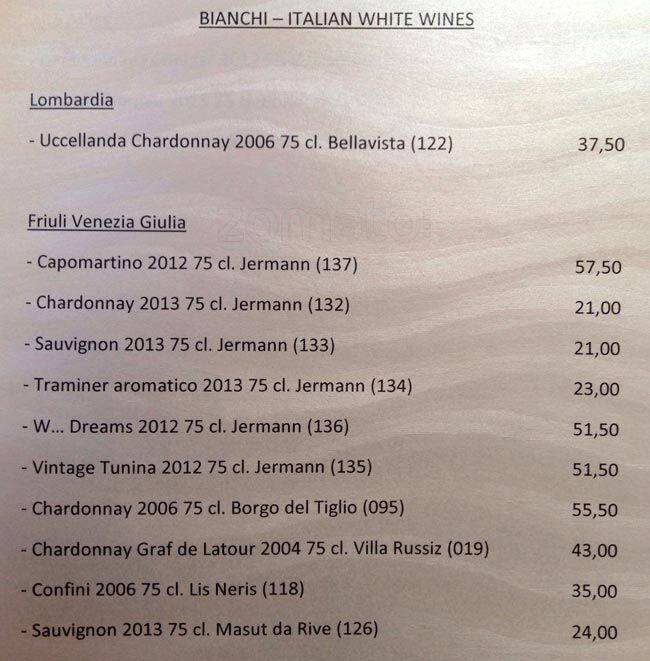 BIANCHI – ITALIAN WHITE WINES
Lombardia
- Uccellanda Chardonnay 2006 75 cl. Bellavista (122) 37,50
zomato
Friuli Venezia Giulia
- Capomartino 2012 75 cl. Jermann (137) 57,50
- Chardonnay 2013 75 cl. Jermann (132) 21,00
- Sauvignon 2013 75 cl. Jermann (133) 21,00
- Traminer aromatico 2013 75 cl. Jermann (134) 23,00
- W... Dreams 2012 75 cl. Jermann (136) 51,50
- Vintage Tunina 2012 75 cl. Jermann (135) 51,50
- Chardonnay 2006 75 cl. Borgo del Tiglio (095) 55,50
- Chardonnay Graf de Latour 2004 75 cl. Villa Russiz (019) 43,00
- Confini 2006 75 cl. Lis Neris (118) 35,00
- Sauvignon 2013 75 cl. Masut da Rive (126) 24,00